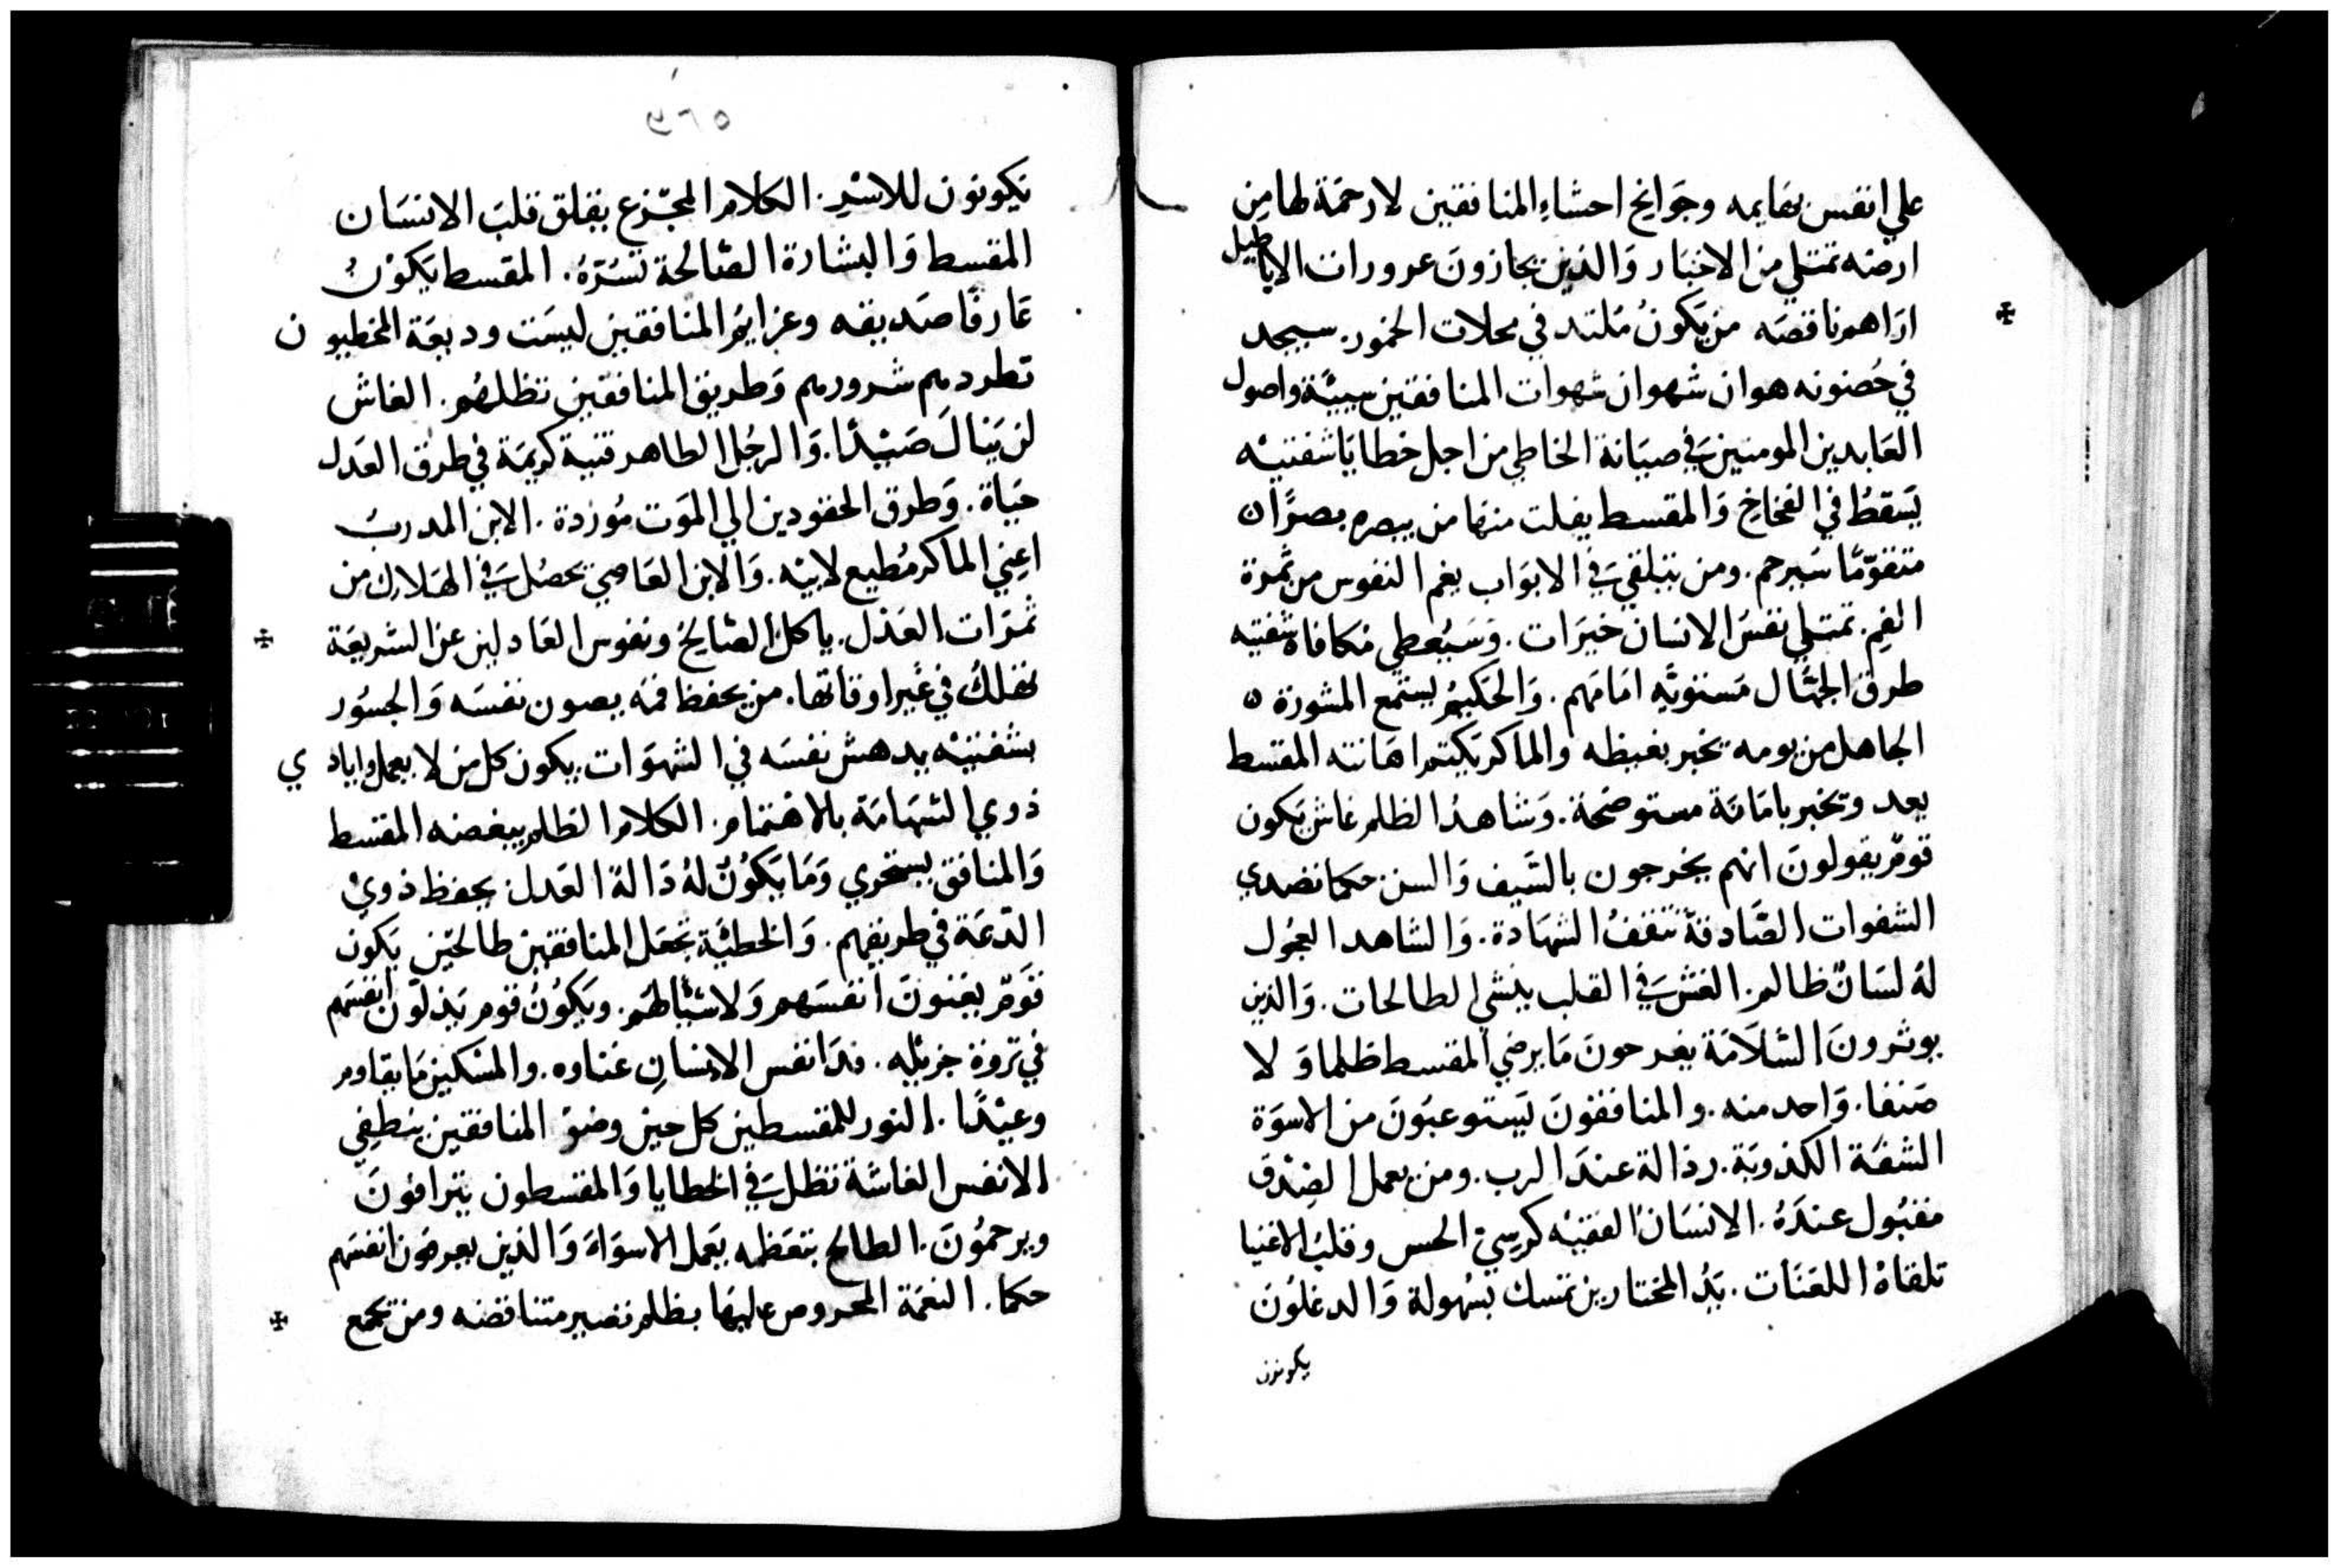 علي انفس بهايمه وجوانح احشاءِ المنافقين لا رحمة لها من
ارضه تمتلي من الاخبار وَالذين يجازونَ عرورات الاباطيل
اراهم ناقصه من يكونُ مُلتد في محلات الخمور. سيجد
في حُصنونه هوان شهوان شهوات المنافقين سييئة واصول
العَابدين المومنين في صيَانة الخاطي من اجل خطايَا شفتيْه
يَسقطُ في الفخاخ وَالمقسط يفلت منها من يبصره بصرًا ن
متقوّمًا سَيرحم. ومن يتلقي في الابوَاب يغم النفوس من ثمرة
الفمِ. تمتلي نفسُ الانسان خيرَات. وَسَيُعطي مكافاة شفتيه
طرق الجهّال مَستويَه امَامَهم. وَالحَكيمُ يستمع المشورَة ه
الجاهل من يومه يخبر بغيظه والماكر يَكتم اهانته المقسط
يعد ويخبر بامَانَة مستوضحة. وَشاهدُ الظلم غاش يَكون
قومٌ يقولونَ انهم يخرجون بالسَيف وَالسن حكما تصدي
الشفوات الصَّادقة تثقفُ الشهَادة. وَالشاهد العجُول
لهُ لسَانٌ ظالم. الغش في القلب ينشي الطالحات. وَالذين
يوثرونَ السَّلاَمَة يفرحونَ مَا يرضي المقسط ظلما وَلا
صَنفا. وَاحد منه. والمنافقونَ يَستوعبَونَ من الاسوَة
الشفَة الكذوبَة. رذالة عندَ الرب. ومن يعمل الصِدْق
مقبُول عندَهُ. الانسَان الفقيْه كرسيّ الحس وقلبُ الاغنيا
تلقاهْ اللعنَات. يَدُ المختارين تمسك بسُهولة وَالدغلُونَ
يكونون
٥٦٩
يكونون للاسْرِ. الكلام المجْزع يقلق قلبَ الانسَان
المقسط وَالبشارة الصّالحة تسُرّهُ. المقسط يَكوْنُ
عَارفًا صَديقه وعزايمُ المنافقين ليسَت وديعَة المخطيون
تطردهم شرورهم وَطريق المنافقين تظلهُم. الغاش
لن يَنالَ صَيْدًا. وَالرجُل الطاهر قنية كريمَة في طرق العَدل
حيَاة. وَطرق الحقودين الي الموَت مُوردة. الابن المدربُ
اعِني الماكر مُطيع لابيْه. وَالابن العَاصي يحصُل في الهَلاك من
ثمرَات العَدْل. ياكل الصَّالح ونفوس العَادلين عن الشريعَة
تهلكُ في غيْر اوقاتها. من يحفظ فمَه يصون نفسَه وَالجسُور
بشفتيْه يدهش نفسَه في الشهوَات. يكون كل من لا يعمل وايادي
ذوي الشهَامَة بالاهتمام. الكلام الظلم يبغضه المقسط
وَالمنافق يستخري وَمَا يَكوُنُ لهُ دَالة العَدل يحفظ ذويْ
الدّعَة في طريقهم. وَالخطيْة تجعَل المنافقين طالحيْن يَكون
قَومٌ يغنونَ انفسَهم وَلا شيْاً لهَم. ويَكوُنُ قوم يَذلون انفسَهم
في ثروة جزيْله. فدَا نفس الانسانِ غناوه. والمسْكين مَا يقاوم
وعيْدًا. النور للمقسطين كل حين وضوْ المنافقين ينطفي
الانفس الغاشة تظل في الخطايا وَالمقسطون يترافونَ
ويرحمُونَ. الطالح بتعَظمه يَعمل الاسوَاءَ وَالذين يعرضون انفسَهم
حكما. النعمَة المحروص عليْها بظلم تصير متناقضه ومن يجمع